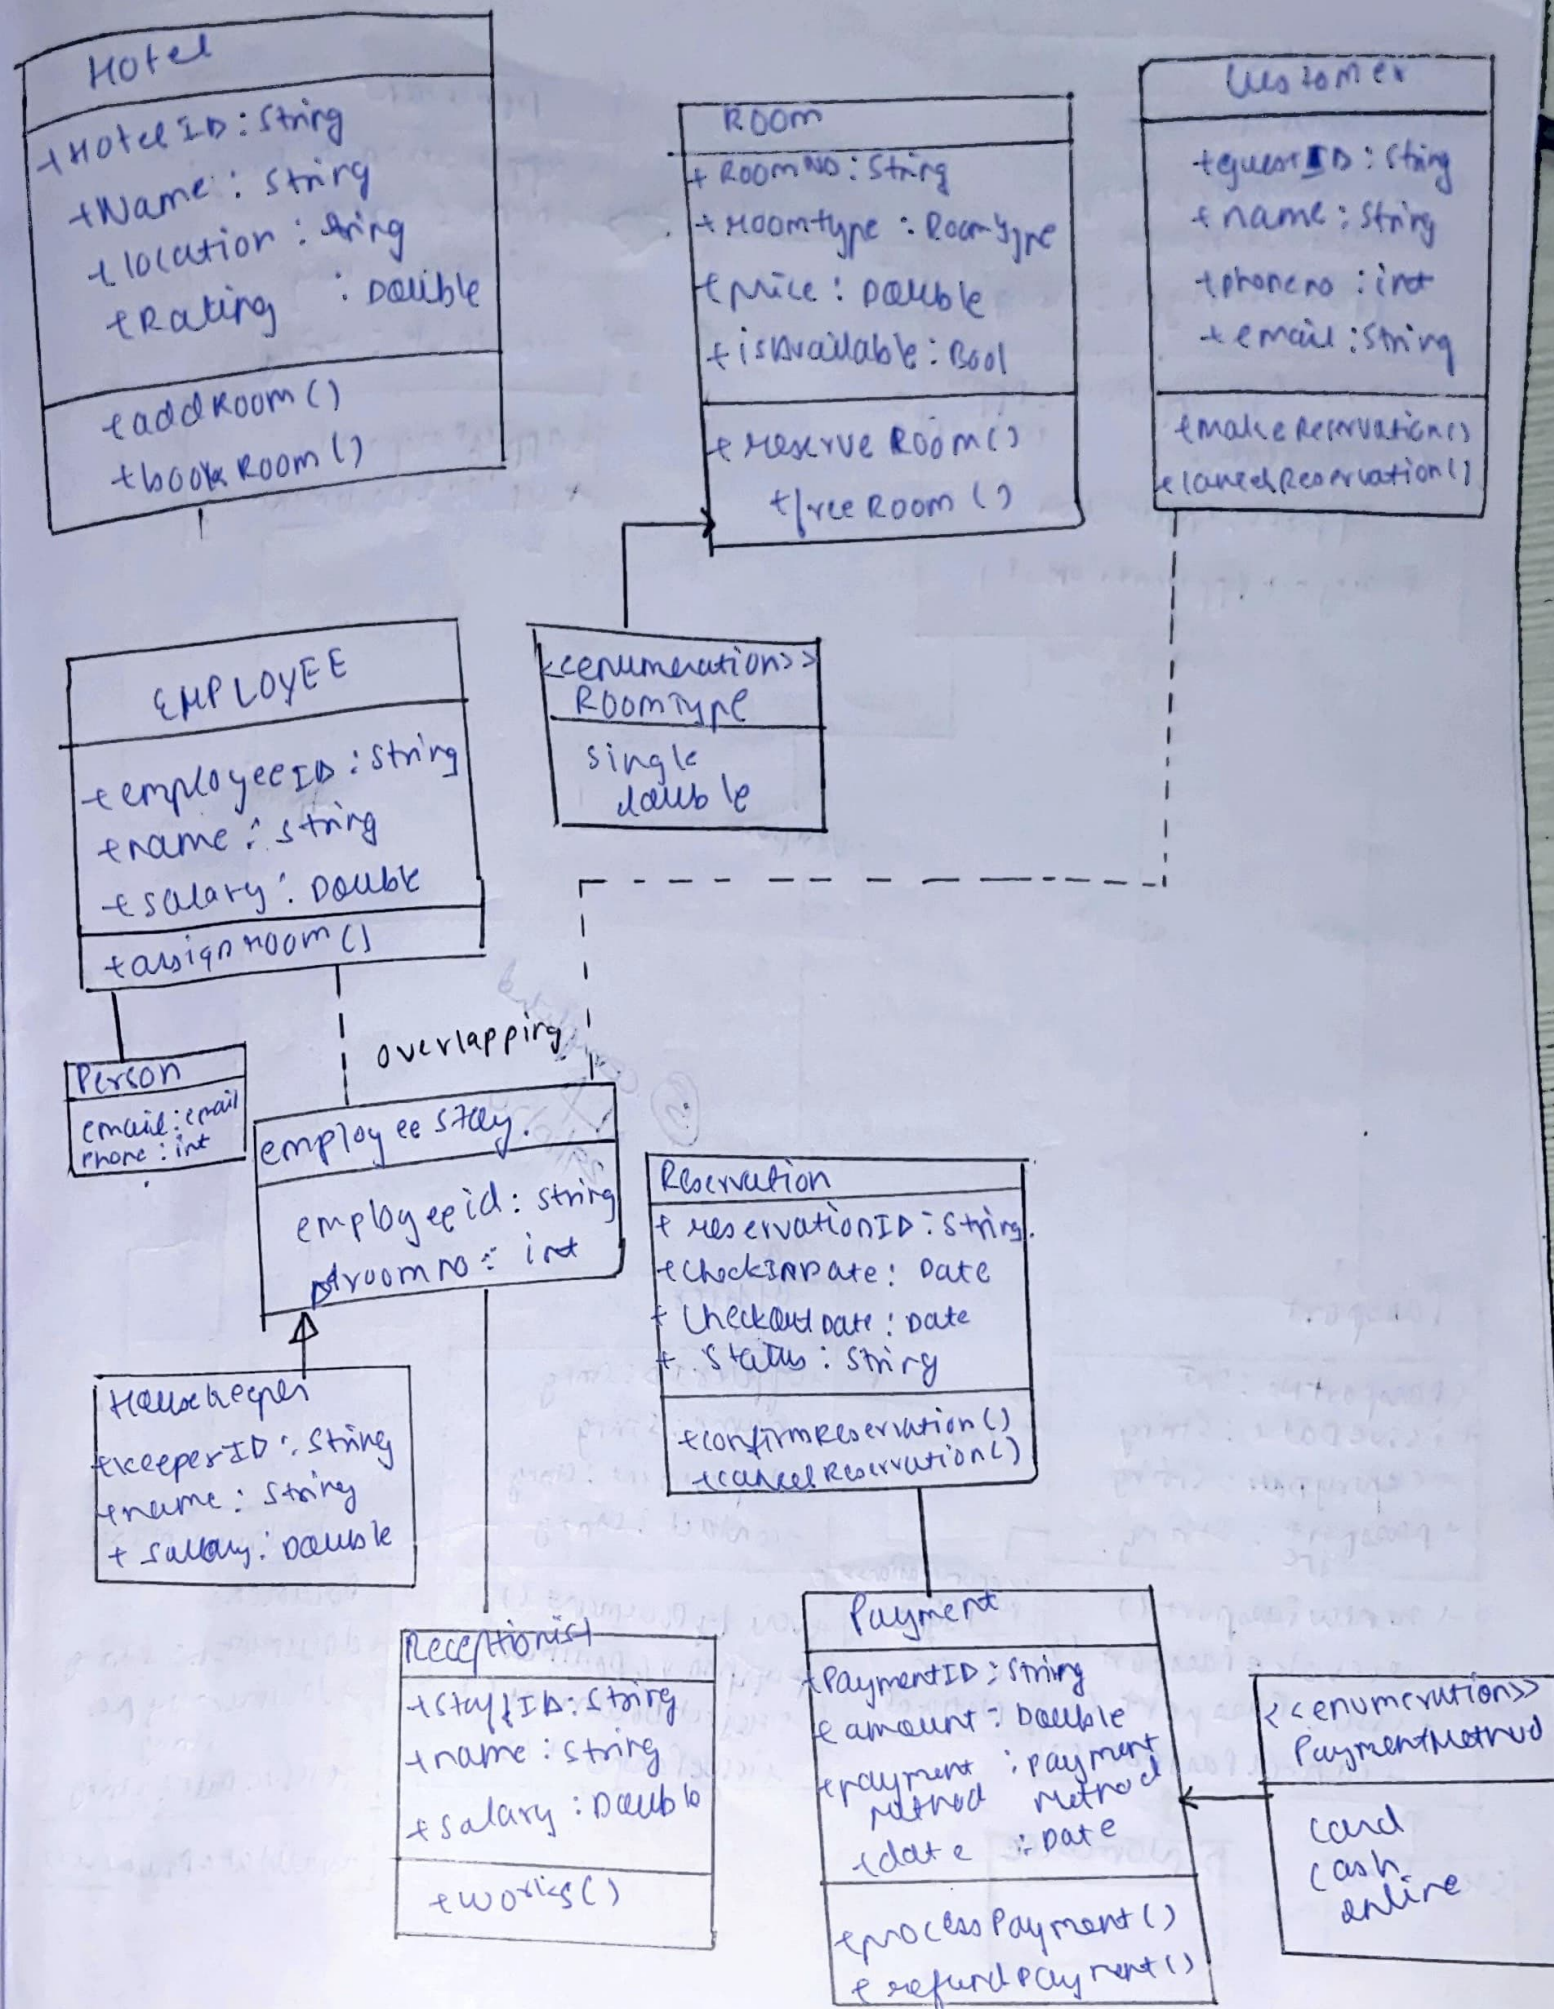 Hotel
+HotelID : String
+Name : String
+location : String
+Rating : Double
+addRoom()
+bookRoom()
Room
+ RoomNo : String
+roomtype : RoomType
+price : Double
+isAvailable : Bool
+reserveRoom()
+freeRoom()
Customer
+guestID : String
+name : String
+phoneno : int
+email : String
+makeReservation()
+cancelReservation()
EMPLOYEE
+employeeID : String
+name : String
+salary : Double
+assignroom()
<<enumeration>>
RoomType
single
double
Person
email : email
Phone : int
overlapping
employee stay
employeeid : string
roomno : int
Reservation
+ reservationID : String
+CheckINDate : Date
+ CheckoutDate : Date
+ Status : String
+confirmReservation()
+cancelReservation()
Housekeeper
+keeperID : String
+name : String
+ salary : Double
Receptionist
+staffID : String
+name : String
+salary : Double
+works()
Payment
+PaymentID : String
+amount : Double
+payment : payment
method method
+date : Date
+processPayment()
+refundPayment()
<<enumeration>>
PaymentMethod
card
cash
online